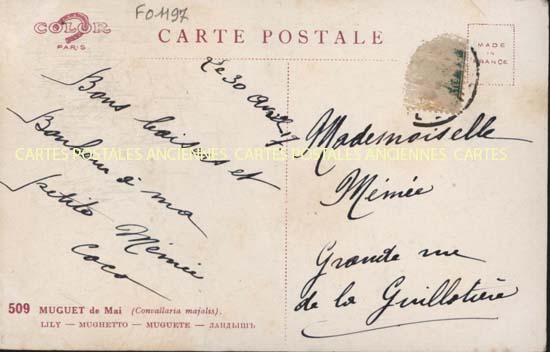 FO1197
COLOR
PARIS
CARTE POSTALE
MADE
IN
FRANCE
Le 30 Avril 17
Bons baisers et
Bonbon à ma
petite Mémée
Coco
Mademoiselle
Mémée
Grande rue
de la Guillotière
CARTES POSTALES ANCIENNES. CARTES POSTALES ANCIENNES. CARTES
509 MUGUET de Mai (Convallaria majalis).
LILY — MUGHETTO — MUGUETE — ЛАНДЫШЪ